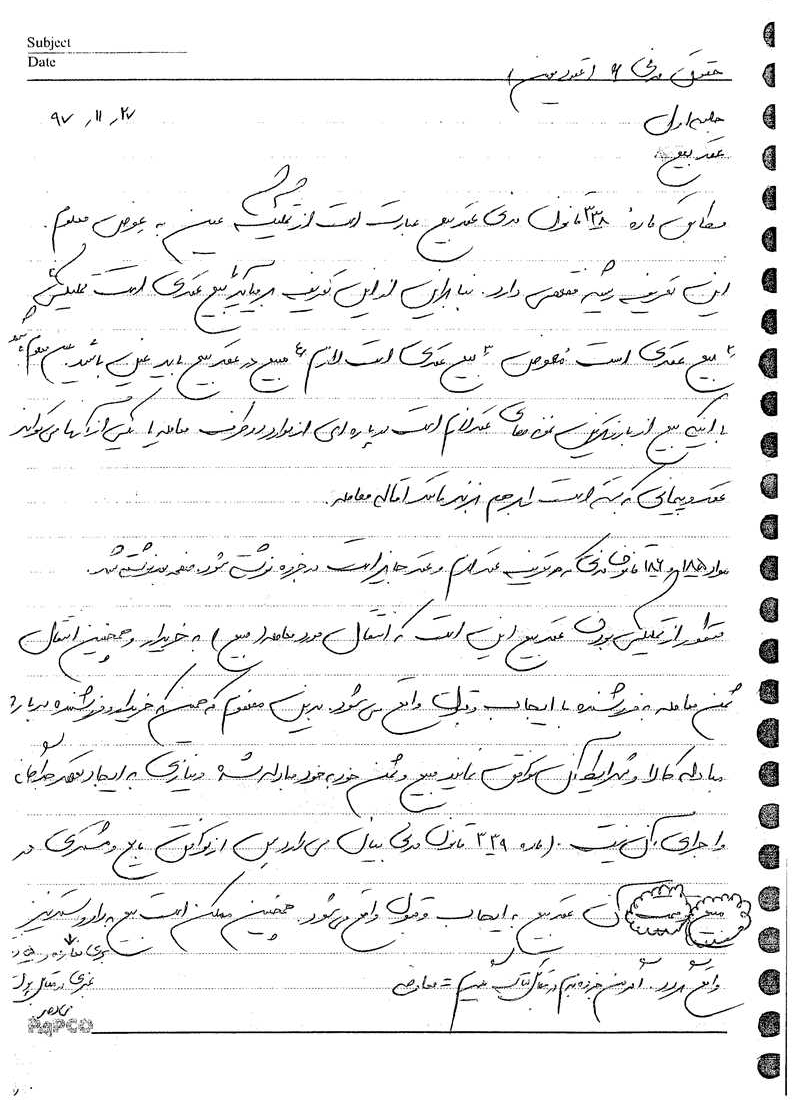 Subject
Date
حقوق مدنی ۶ (عقود معین)
جلسه اول
۹۷٫۱۱٫۲۷
عقد بیع
مطابق ماده ۳۳۸ قانون مدنی عقد بیع عبارت است از تملیک عین به عوض معلوم.
این تعریف ریشه فقهی دارد. بنابراین از این تعریف بر می‌آید ۱ بیع عقدی است تملیکی
۲ بیع عقدی است معوض ۳ بیع عقدی است لازم ۴ مبیع در عقد بیع باید عین باشد
با اینکه بیع از بارزترین نمونه های عقد لازم است در پاره ای از موارد دو طرف معامله یا یکی از آنها می‌تواند
عقد و پیمانی که بسته است را بر هم بزند مانند اقاله معامله.
مواد ۱۸۵ و ۱۸۶ قانون مدنی که در تعریف عقد لازم و عقد جایز است در جزوه نوشته شود. صفحه بعد نوشته شد.
منظور از تملیکی بودن عقد بیع این است که انتقال مورد معامله (مبیع) به خریدار و همچنین انتقال
ثمن معامله به فروشنده با ایجاب و قبول واقع می‌شود. بدین مفهوم که همین که خریدار و فروشنده درباره
مبادله کالا و شرایط آن توافق نمایند مبیع و ثمن خود به خود مبادله شده و نیازی به ایجاد تعهد
و اجرای آن نیست. (ماده ۳۳۹ قانون مدنی بیان می دارد پس از توافق بایع و مشتری در
مبیع و قیمت آن عقد بیع به ایجاب و قبول واقع می‌شود. همچنین ممکن است بیع به داد و ستد نیز
واقع گردد.
PaPCO